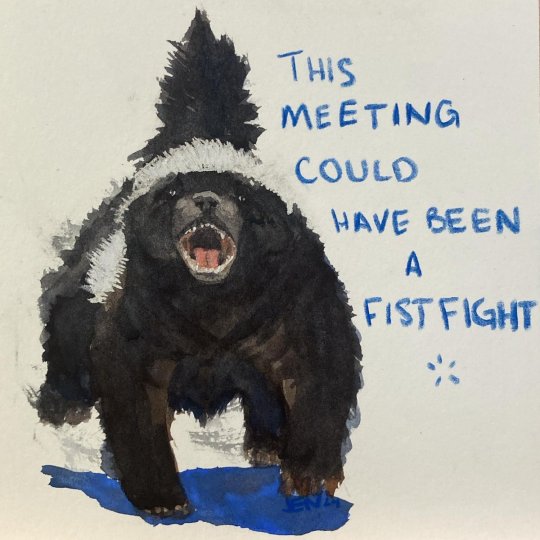 THIS
MEETING
COULD
HAVE BEEN
A
FIST FIGHT